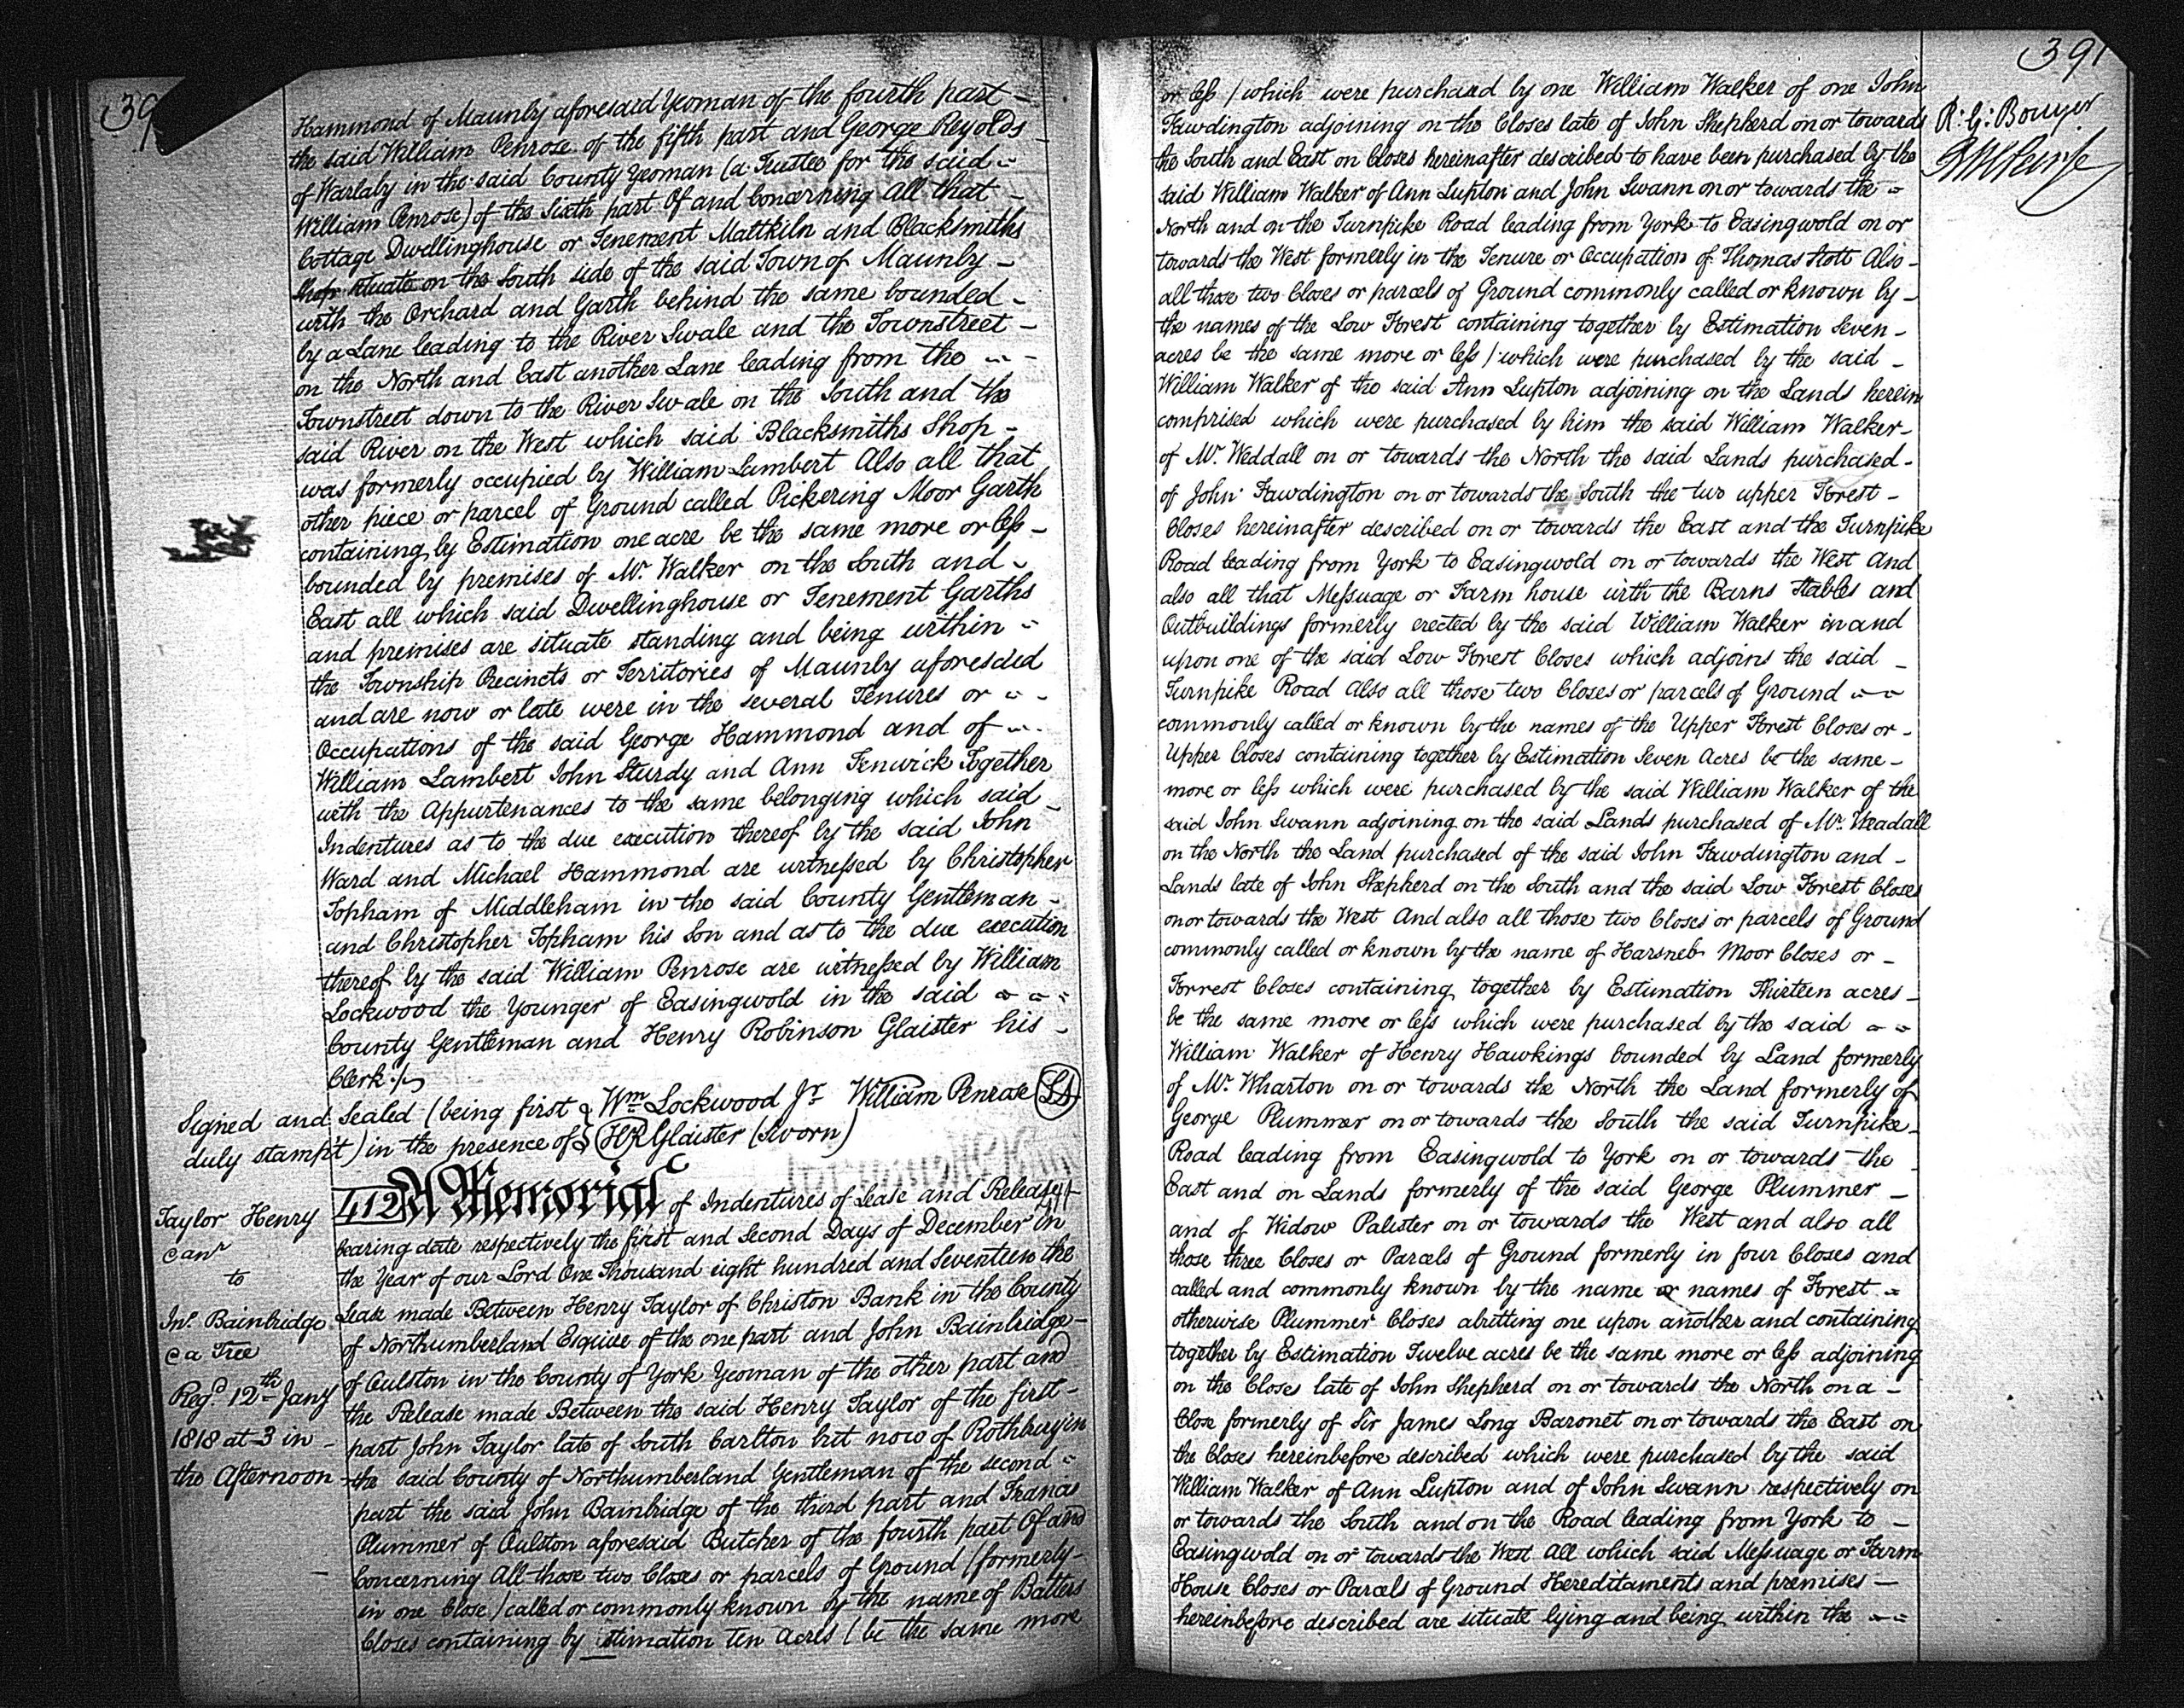 39
Hammond of Maunby aforesaid Yeoman of the fourth part –
the said William Penrose of the fifth part and George Reyolds –
of Warlaby in the said County Yeoman (a Trustee for the said –
William Penrose) of the Sixth part Of and Concerning All that –
Cottage Dwellinghouse or Tenement Maltkiln and Blacksmiths
Shop situate on the South side of the said Town of Maunby –
with the Orchard and Garth behind the same bounded –
by a Lane leading to the River Swale and the Townstreet –
on the North and East another Lane leading from the – –
Townstreet down to the River Swale on the South and the
said River on the West which said Blacksmiths Shop –
was formerly occupied by William Lambert Also all that
other piece or parcel of Ground called Pickering Moor Garth
containing by Estimation one acre be the same more or less –
bounded by premises of Mr. Walker on the South and –
East all which said Dwellinghouse or Tenement Garths
and premises are situate standing and being within –
the Township Precincts or Territories of Maunby aforesaid
and are now or late were in the several Tenures or – –
Occupations of the said George Hammond and of – –
William Lambert John Sturdy and Ann Fenwick Together
with the Appurtenances to the same belonging which said –
Indentures as to the due execution thereof by the said John
Ward and Michael Hammond are witnessed by Christopher
Topham of Middleham in the said County Gentleman –
and Christopher Topham his Son and as to the due execution
thereof by the said William Penrose are witnessed by William
Lockwood the Younger of Easingwold in the said – – –
County Gentleman and Henry Robinson Glaister his –
Clerk
Signed and Sealed (being first Wm Lockwood Jr William Penrose LS
duly stamp't) in the presence of HR Glaister (Sworn)
Taylor Henry
& anr
to
Jno. Bainbridge
& a Tree
Reg.d 12th Jany
1818 at 3 in –
the Afternoon
412 A Memorial of Indentures of Lease and Release
bearing date respectively the first and second Days of December in
the Year of our Lord One Thousand eight hundred and Seventeen the
Lease made Between Henry Taylor of Christon Bank in the County
of Northumberland Esquire of the one part and John Bainbridge –
of Oulston in the County of York Yeoman of the other part and
the Release made Between the said Henry Taylor of the first –
part John Taylor late of South Carlton but now of Rothbury in
the said County of Northumberland Gentleman of the second –
part the said John Bainbridge of the third part and Francis
Plummer of Oulston aforesaid Butcher of the fourth part Of and
Concerning All those two Closes or parcels of Ground (formerly –
in one Close) called or commonly known by the name of Batters
Closes containing by Estimation ten Acres (be the same more
391
or less) which were purchased by one William Walker of one John
Fawdington adjoining on the Closes late of John Shepherd on or towards
the South and East on Closes hereinafter described to have been purchased by the
said William Walker of Ann Lupton and John Swann on or towards the –
North and on the Turnpike Road leading from York to Easingwold on or
towards the West formerly in the Tenure or Occupation of Thomas Stott Also –
all those two Closes or parcels of Ground commonly called or known by –
the names of the Low Forest containing together by Estimation Seven –
acres be the same more or less) which were purchased by the said –
William Walker of the said Ann Lupton adjoining on the Lands herein
comprised which were purchased by him the said William Walker –
of Mr. Weddall on or towards the North the said Lands purchased –
of John Fawdington on or towards the South the two upper Forest –
Closes hereinafter described on or towards the East and the Turnpike
Road leading from York to Easingwold on or towards the West And
also all that Messuage or Farm house with the Barns Stables and
Outbuildings formerly erected by the said William Walker in and
upon one of the said Low Forest Closes which adjoins the said –
Turnpike Road Also all those two Closes or parcels of Ground – –
commonly called or known by the names of the Upper Forest Closes or –
Upper Closes containing together by Estimation Seven Acres be the same –
more or less which were purchased by the said William Walker of the
said John Swann adjoining on the said Lands purchased of Mr. Weddall
on the North the Land purchased of the said John Fawdington and –
Lands late of John Shepherd on the South and the said Low Forest Closes
on or towards the West And also all those two Closes or parcels of Ground
commonly called or known by the name of Harsneb Moor Closes or –
Forrest Closes containing together by Estimation Thirteen acres –
be the same more or less which were purchased by the said – –
William Walker of Henry Hawkings bounded by Land formerly
of Mr. Wharton on or towards the North the Land formerly of
George Plummer on or towards the South the said Turnpike –
Road leading from Easingwold to York on or towards the
East and on Lands formerly of the said George Plummer –
and of Widow Palister on or towards the West and also all
those three Closes or Parcels of Ground formerly in four Closes and
called and commonly known by the name or names of Forest –
otherwise Plummer Closes abutting one upon another and containing
together by Estimation Twelve acres be the same more or less adjoining
on the Closes late of John Shepherd on or towards the North on a –
Close formerly of Sir James Long Baronet on or towards the East on
the Closes hereinbefore described which were purchased by the said
William Walker of Ann Lupton and of John Swann respectively on
or towards the South and on the Road leading from York to –
Easingwold on or towards the West All which said Messuage or Farm
House Closes or Parcels of Ground Hereditaments and premises –
hereinbefore described are situate lying and being within the – –
R: G: Bouyer